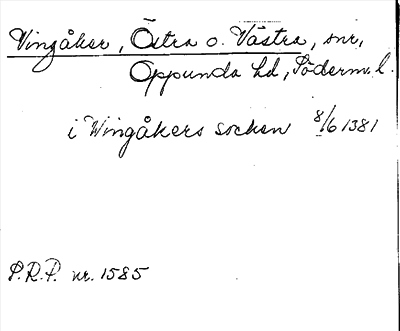 Vingåker, Östra o. Västra, snr,
Oppunda hd, Söderm. l.
i Wingåkers socken 8/6 1381
S.R.P. nr. 1585